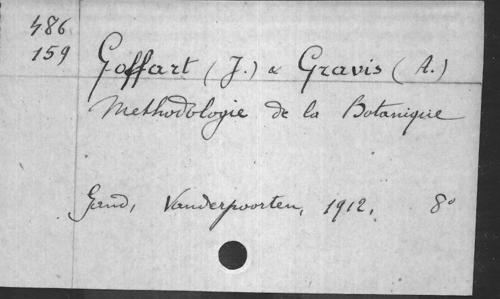 486
159
Goffart (J.) & Gravis (A.)
Methodologie de la Botanique
Gand, Vanderpoorten, 1912, 8°